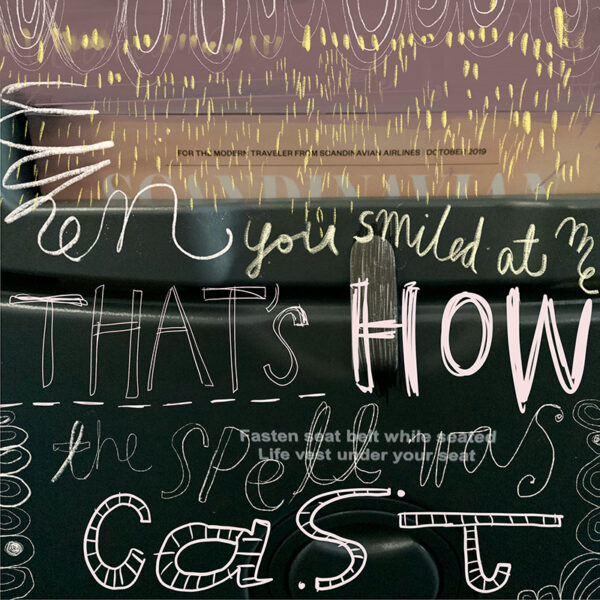 FOR THE MODERN TRAVELER FROM SCANDINAVIAN AIRLINES OCTOBER 2019
SCANDINAVIAN
When
you smiled at me
THAT'S HOW
Fasten seat belt while seated
Life vest under your seat
the spell was
CaST